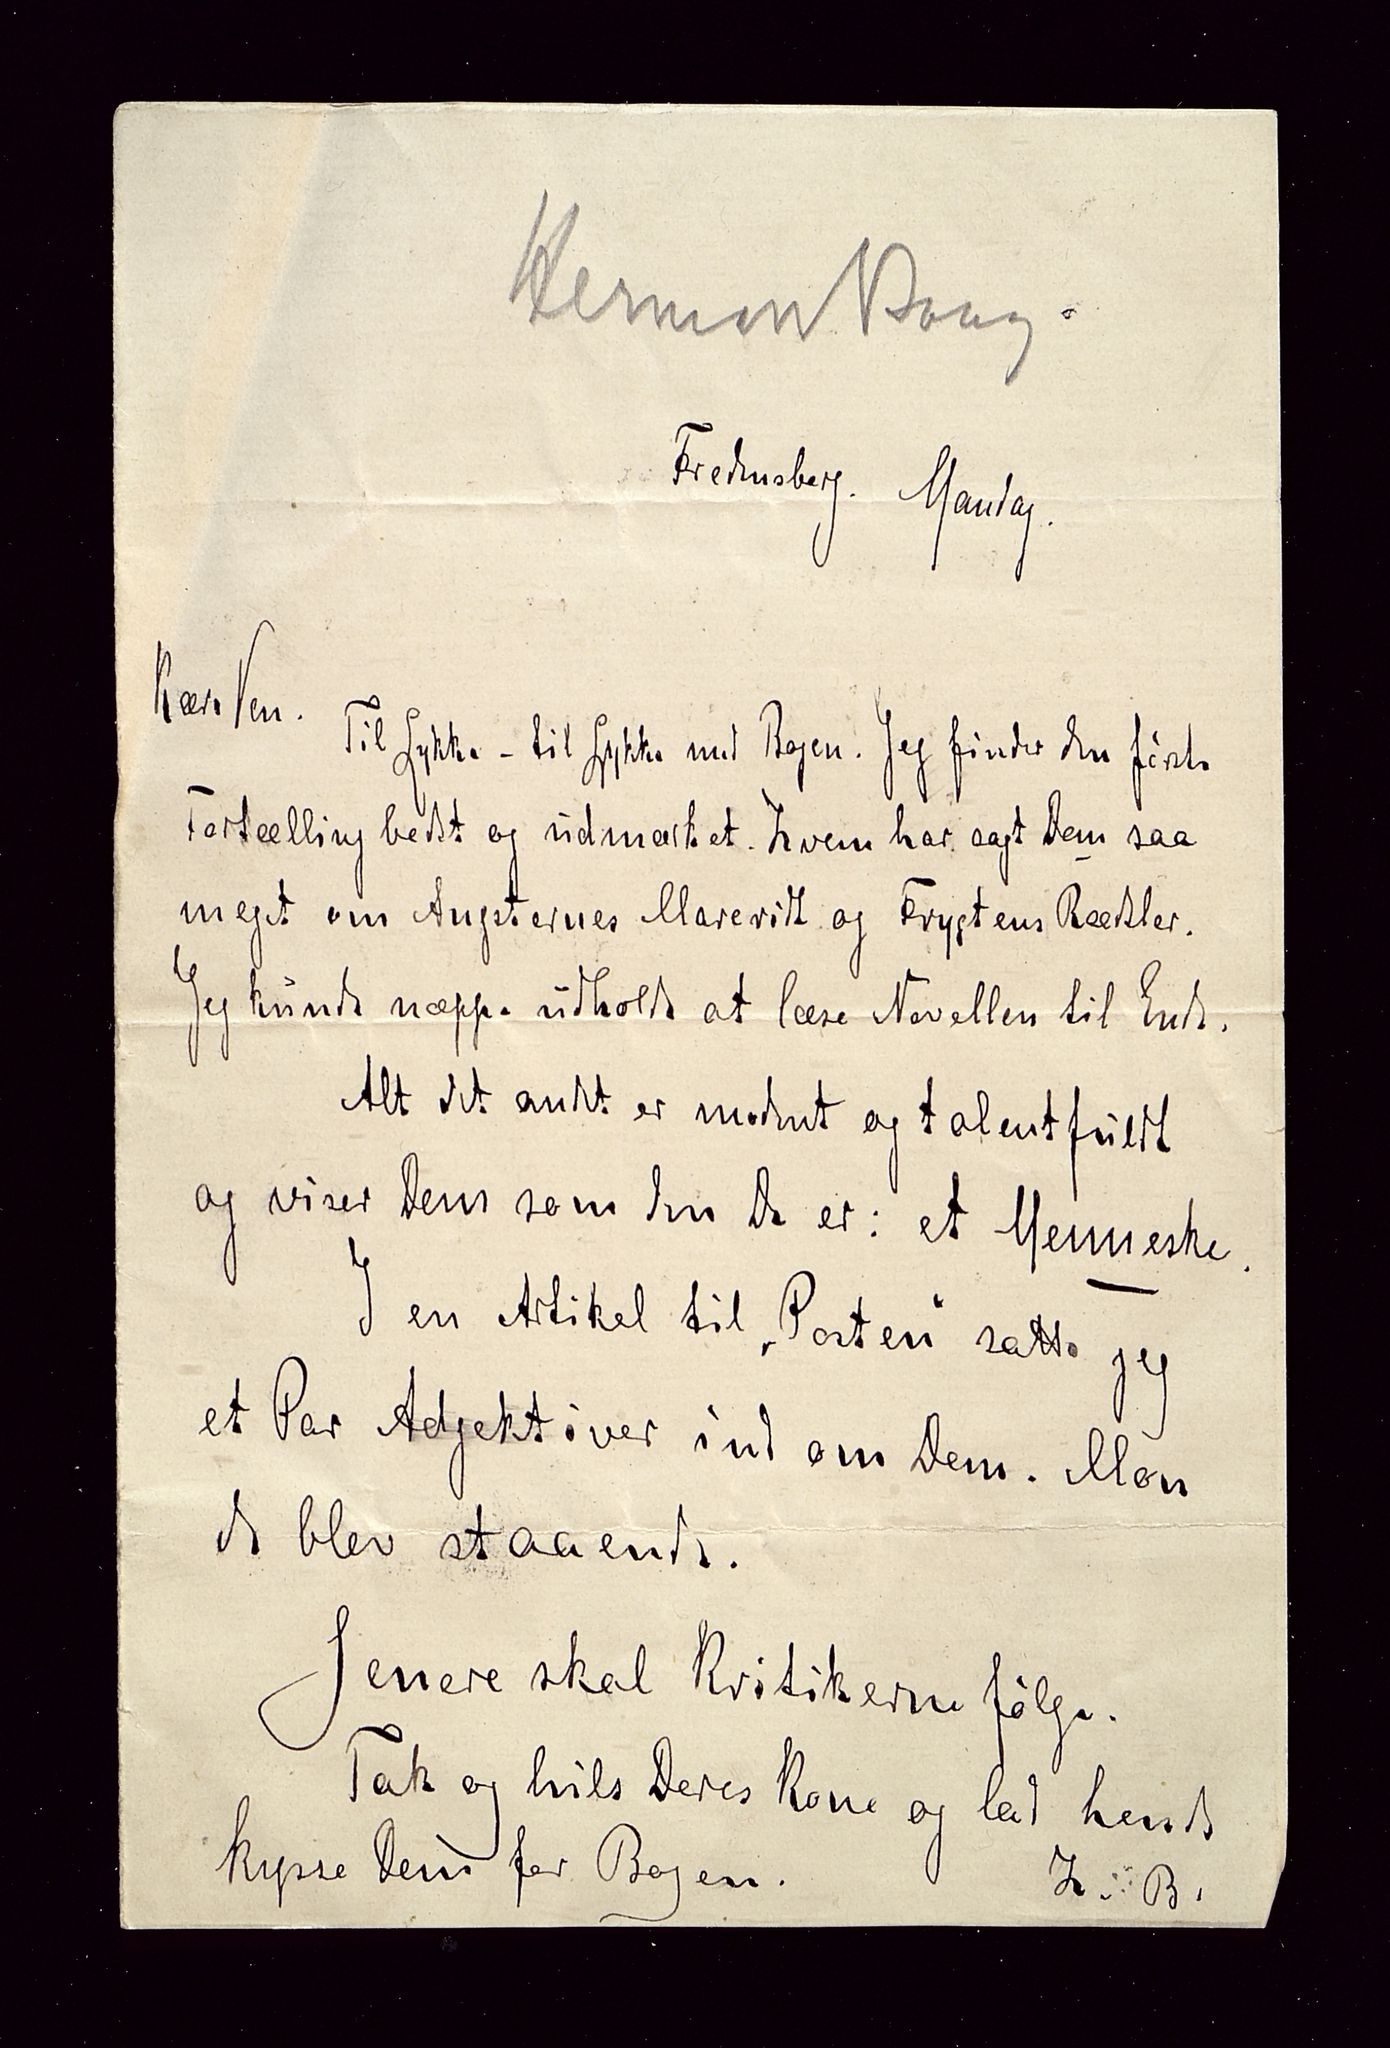 Herman Bang.
Fredensberg. Mandag.
Kære Ven.
Til Lykke - til Lykke med Bogen. Jeg finder den første
Fortælling bedst og udmærket. Hvem har sagt Dem saa
meget om Angsternes Mareridt og Frygtens Rædsler.
Jeg kunde næppe udholde at læse Novellen til Ende.
Alt det andet er modent og talentfuldt
og viser Dem som den De er: et Menneske.
I en Artikel til „Posten“ satte jeg
et Par Adjektiver ind om Dem. Mon
de blev staaende.
Senere skal Kritikerne følge.
Tak og hils Deres Kone og lad hende
kysse Dem for Bogen.
H. B.